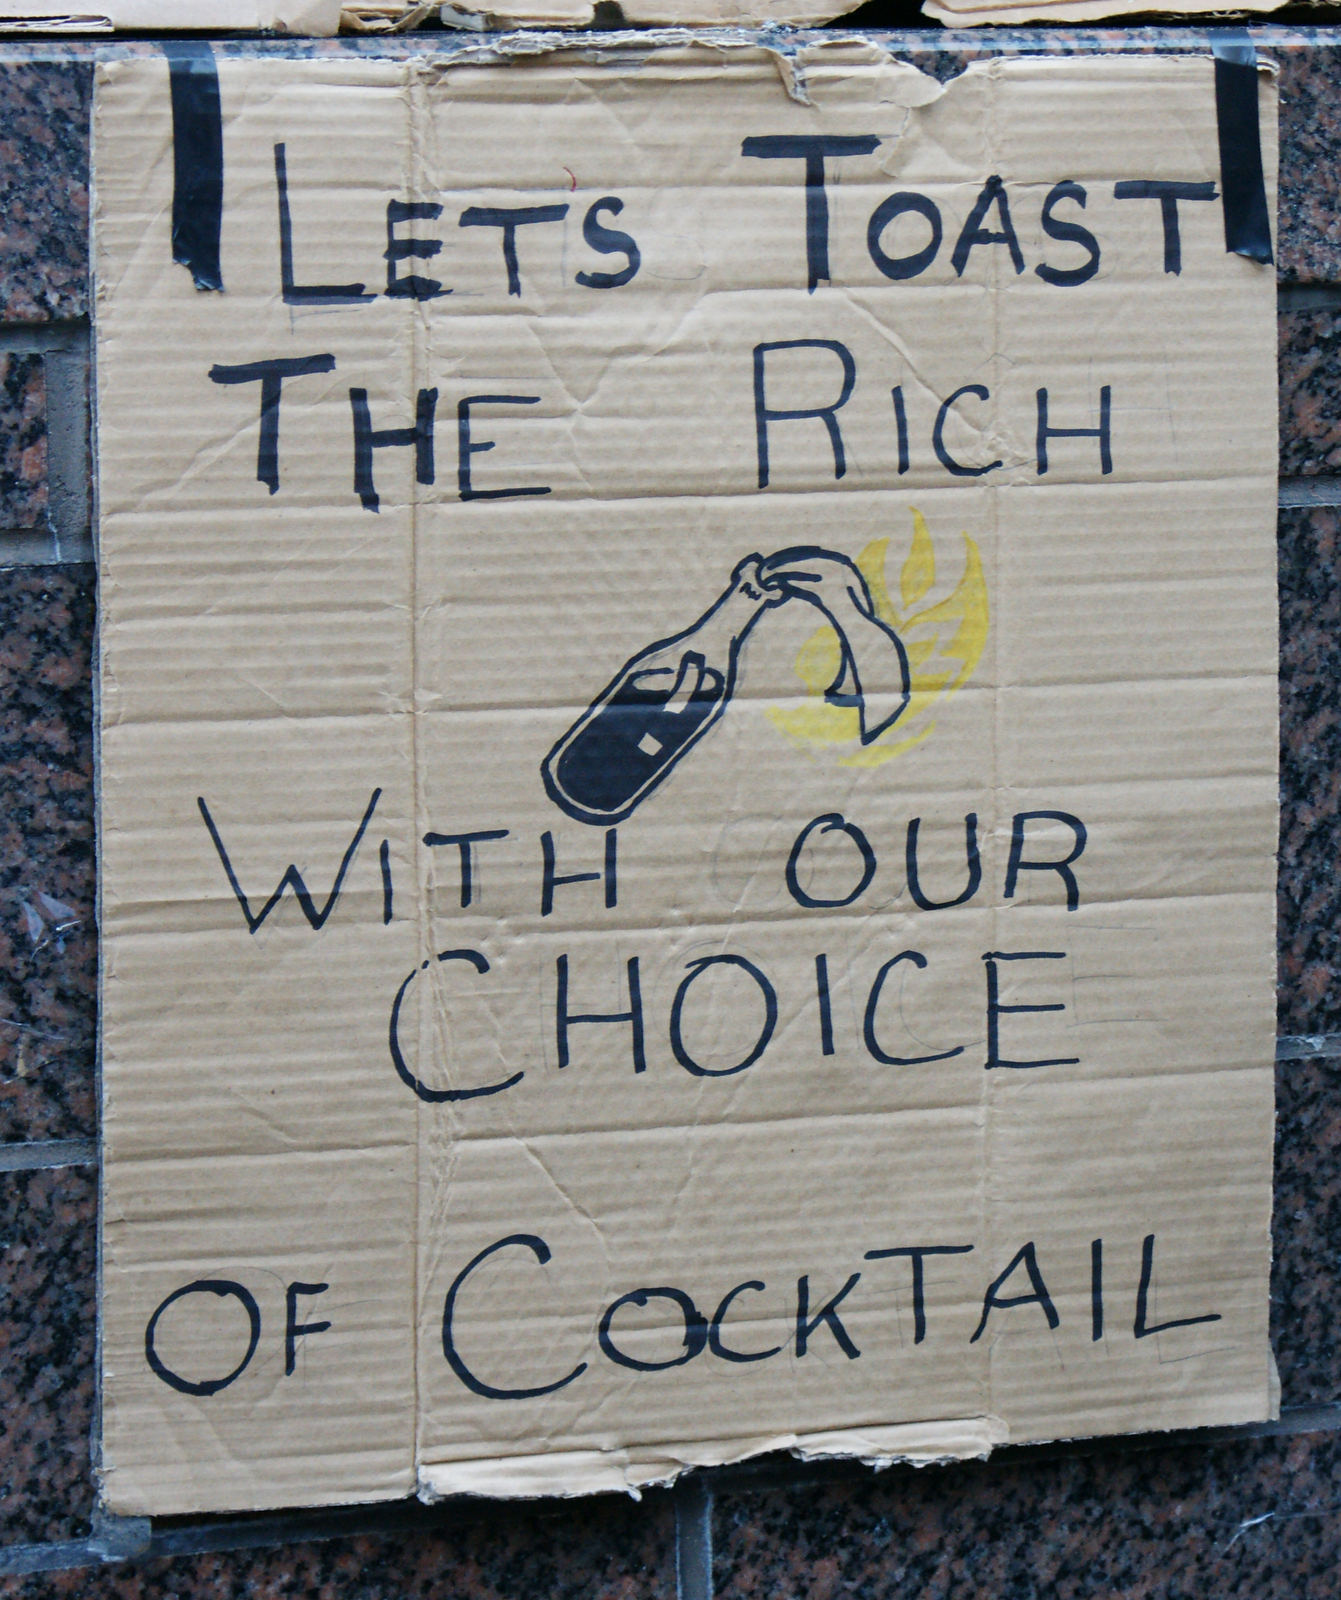 LETS TOAST
THE RICH
WITH OUR
CHOICE
OF COCKTAIL